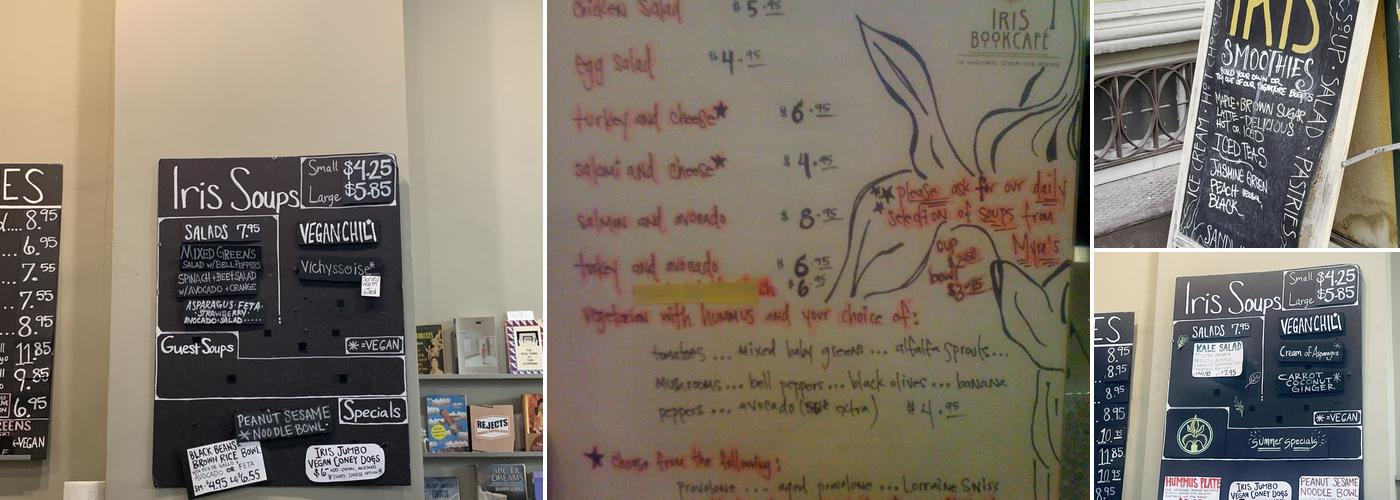 ES
8.95
6.95
7.55
7.55
8.95
11.85
9.85
6.95
EENS
=VEGAN
Iris Soups
Small $4.25
Large $5.85
SALADS 7.95
MIXED GREENS
SALAD W/BELL PEPPERS
SPINACH + BEET SALAD
W/AVOCADO + ORANGE
ASPARAGUS · FETA
STRAWBERRY
AVOCADO SALAD
VEGAN CHILI
Vichyssoise*
Guest Soups
*=VEGAN
Specials
PEANUT SESAME
* NOODLE BOWL
BLACK BEANS
BROWN RICE BOWL
AVOCADO OR FETA
SM- $4.95 LG $6.55
IRIS JUMBO
VEGAN CONEY DOGS
REJECTS
ARCTIC
DREAMS
chicken Salad $5.95
egg salad $4.95
turkey and cheese★ $6.95
salami and cheese★ $4.95
salmon and avocado $8.95
turkey and avocado $6.95
$6.95
vegetarian with hummus and your choice of:
tomatoes... mixed baby greens... alfalfa sprouts...
mushrooms... bell peppers... black olives... banana
peppers... avocado (55¢ extra) $4.95
★ choose from the following:
Provolone ... aged provolone ... Lorraine Swiss
IRIS
BOOKCAFÉ
IN HISTORIC OVER-THE-RHINE
★★ please ask for our daily
selection of soups from
Myra's
cup
$2.50
bowl
$3.95
IRIS
SMOOTHIES
BUILD YOUR OWN OR
TRY ONE OF OUR SIGNATURE BLENDS
MAPLE · BROWN SUGAR
LATTE - DELICIOUS
HOT OR ICED
ICED TEAS
JASMINE GREEN
PEACH
BLACK
SOUP · SALAD · PASTRIES
ICE CREAM
ES
8.95
8.95
8.95
11.85
10.95
8.95
Iris Soups
Small $4.25
Large $5.85
SALADS 7.95
KALE SALAD
VEGAN CHILI
Cream of Asparagus
CARROT *
COCONUT
GINGER
*=VEGAN
Summer Specials
HUMMUS PLATE
IRIS JUMBO
VEGAN CONEY DOGS
PEANUT SESAME
NOODLE BOWL